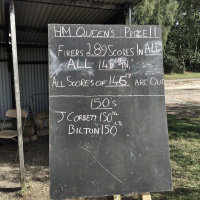 HM QUEENS PRIZE II
FIRERS 289 SCORES IN ALL
ALL 145
ALL SCORES OF 145 ARE OUT
150's
J CORBETT 150
BILTON 150